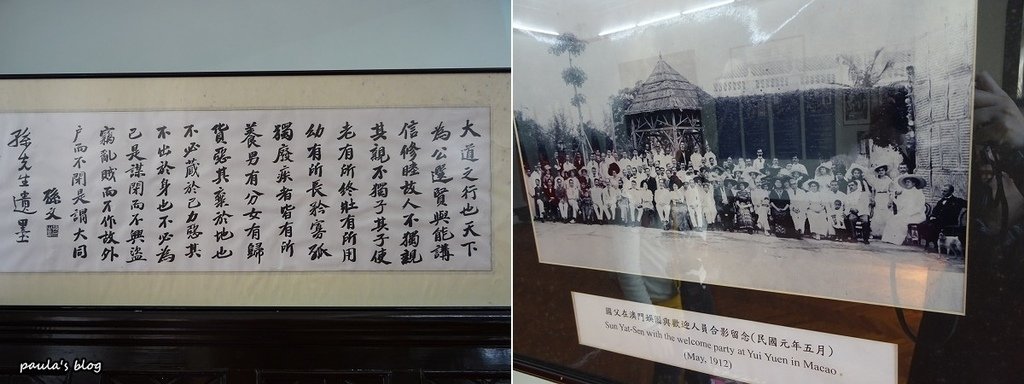 大道之行也天下
為公選賢與能講
信修睦故人不獨親
其親不獨子其子使
老有所終壯有所用
幼有所長矜寡孤
獨廢疾者皆有所
養男有分女有歸
貨惡其棄於地也
不必藏於己力惡其
不出於身也不必為
己是謀閉而不興盜
竊亂賊而不作故外
户而不閉是謂大同
孫文
孫先生遺墨
國父在澳門娛園與歡迎人員合影留念(民國元年五月)
Sun Yat-Sen with the welcome party at Yui Yuen in Macao
(May, 1912)
paula's blog